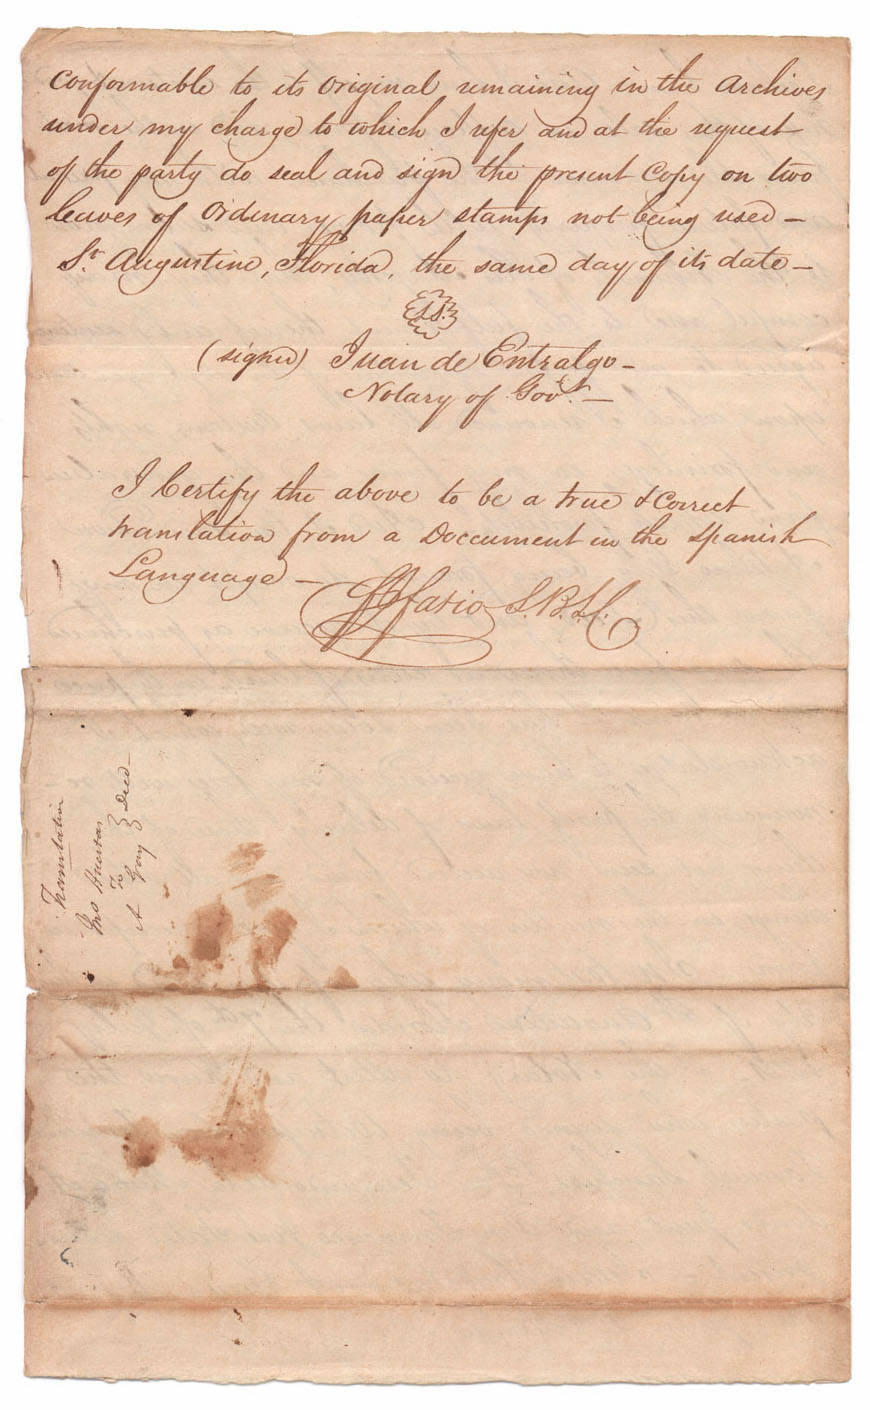 Conformable to its Original remaining in the Archives
under my charge to which I refer and at the request
of the party do seal and sign the present Copy on two
leaves of Ordinary paper stamps not being used –
St. Augustine, Florida, the same day of its date –
L.S.
(signed) Juan de Entralgo –
Notary of Govt. –
I Certify the above to be a true & Correct
translation from a Doccument in the Spanish
Language –
S.B.L.C.
Translation
Jno Huertas
To
A Gay
Deed –